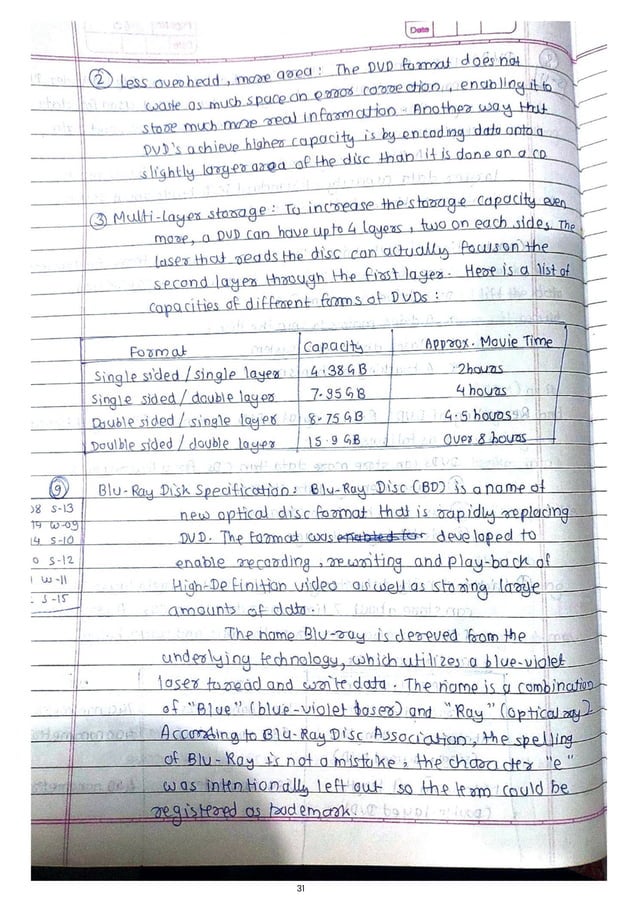 Date
② Less overhead, more area: The DVD format does not
waste as much space on error correction, enabling it to
store much more real information. Another way that
DVD's achieve higher capacity is by encoding data onto a
slightly larger area of the disc than it is done on a CD
③ Multi-layer storage: To increase the storage capacity even
more, a DVD can have upto 4 layers, two on each side. The
laser that reads the disc can actually focus on the
second layer through the first layer. Here is a list of
capacities of different forms of DVDs:
Format Capacity Approx. Movie Time
Single sided / single layer 4.38GB 2hours
Single sided / double layer 7.95GB 4 hours
Double sided / single layer 8.75GB 4.5 hours
Doulble sided / double layer 15.9 GB Over 8 hours
⑨ Blu-Ray Disk Specification: Blu-Ray Disc (BD) is a name of
S-13 new optical disc format that is rapidly replacing
W-09 DVD. The format was enabled for developed to
S-10
S-12 enable recording, rewriting and play-back of
W-11 High-Definition video as well as storing large
S-15 amounts of data.
The name Blu-ray is dereved from the
underlying technology, which utilizes a blue-violet
laser to read and write data. The name is a combination
of "Blue" (blue-violet laser) and "Ray" (optical ray).
According to Blu-Ray Disc Association, the spelling
of Blu-Ray is not a mistake, the character "e"
was intentionally left out so the term could be
registered as trademark.
31